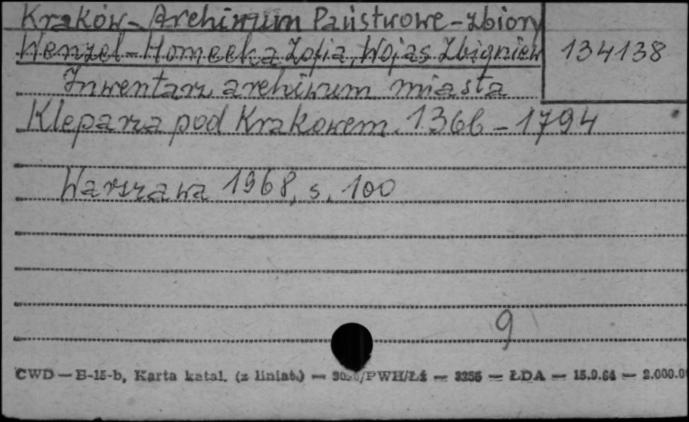 Kraków - Archiwum Państwowe - zbiory
Wenzel-Homecka Zofia, Wojas Zbigniew
134138
Inwentarz archiwum miasta
Kleparza pod Krakowem. 1366 - 1794
Warszawa 1968, s. 100
9
CWD — B-15-b, Karta katal. (z liniat.) — /PWH/Łż — 3256 — ŁDA — 15.9.64 — 2.000.0